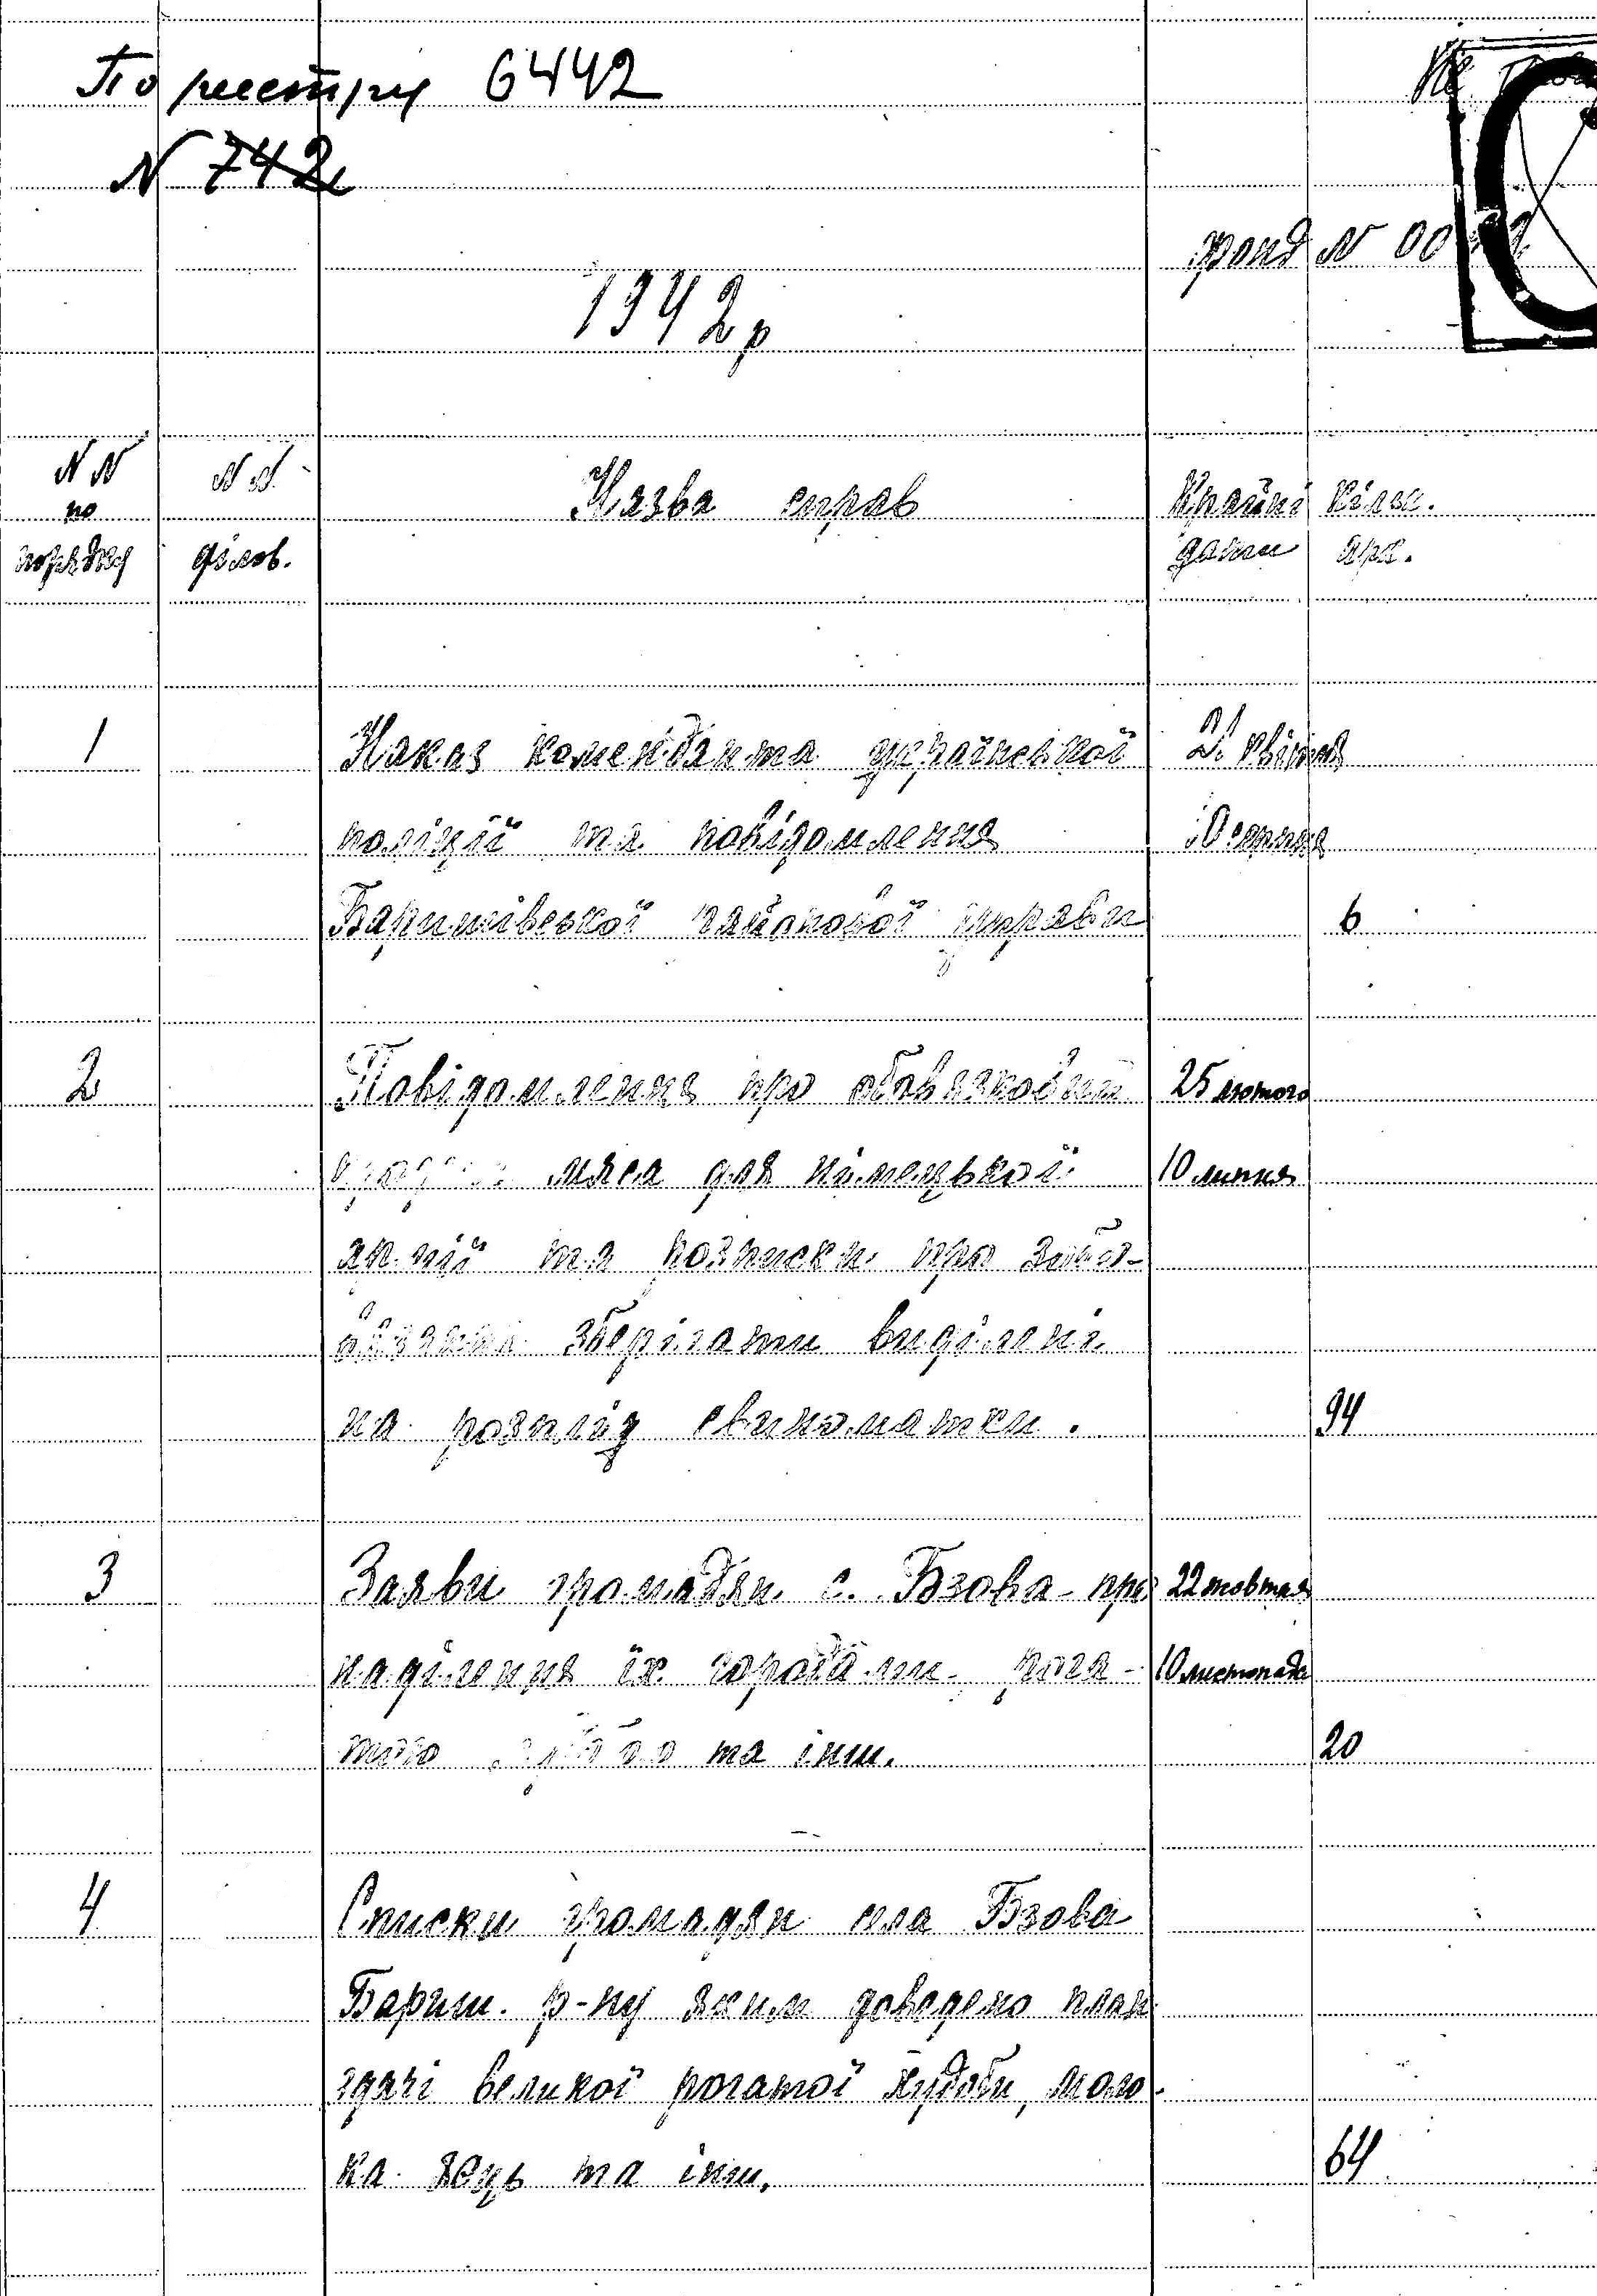 По реестру 6442
N 742
фонд N 00
1942 р
NN по порядку
NN філов.
Назва справ
Крайні дати
Кільк. арк.
1 Наказ коменданта української
поліції та повідомлення
Баришівської районової управи 6
2 Повідомлення про обов'язковий 25 лютого
м'яса для німецької 10 липня
армії та розписки про зобов-
зберігати виділені
на розплід свиноматки. 94
3 Заяви громадян с. Бзова про 22 жовтня
наділення їх городами, рога- 10 листопада
тою худобою та інш. 20
4 Списки громадян села Бзова
Бариш. р-ну яким доведено план
здачі великої рогатої худоби, моло-
ка яєць та інш. 64